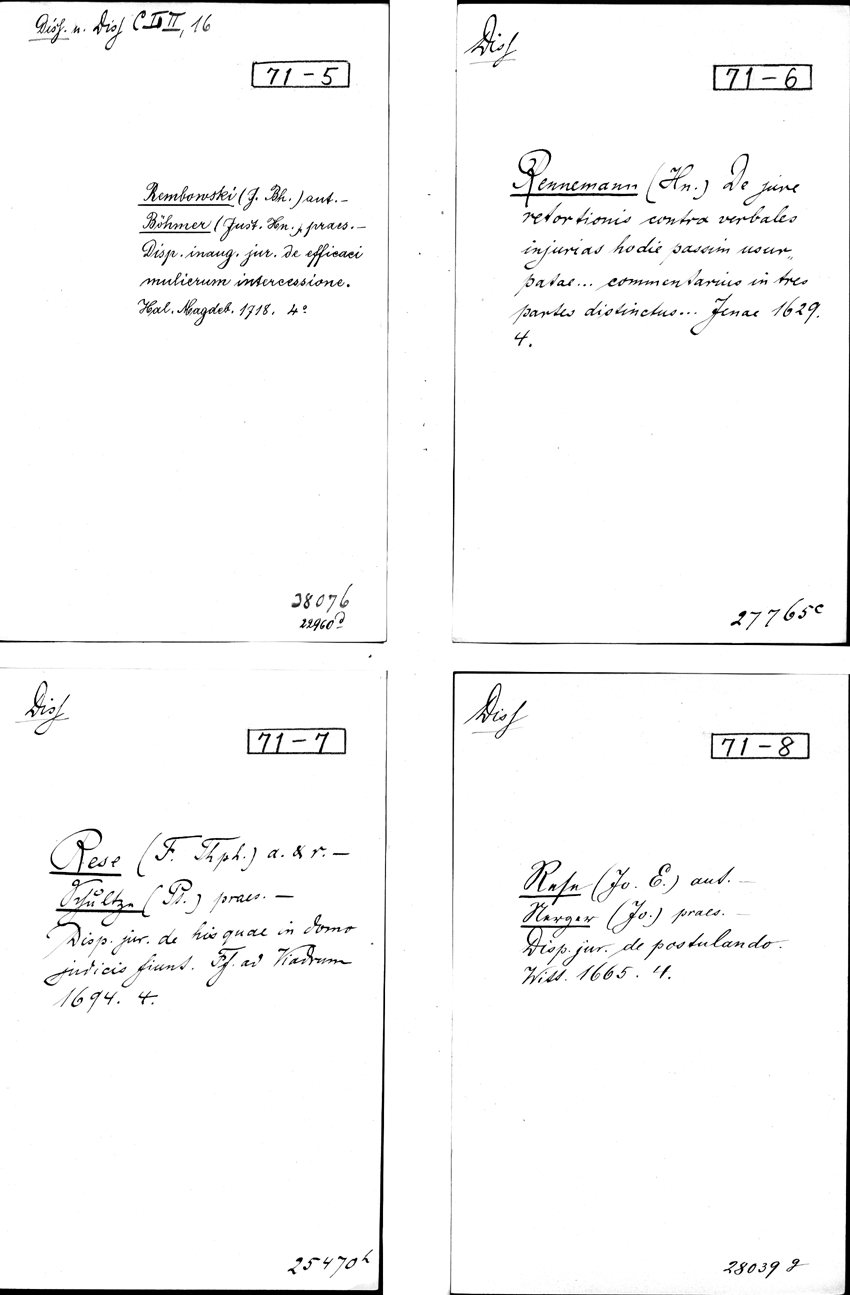 Diss. u. Diss C II, 16
71-5
Rembowski (J. Bh.) aut. –
Böhmer (Just. Hn.) praes. –
Disp. inaug. jur. de efficaci
mulierum intercessione.
Hal. Magdeb. 1718. 4°
38076
22960d
Diss
71-6
Rennemann (Hn.) De jure
retortionis contra verbales
injurias hodie passim usur„
patae... commentarius in tres
partes distinctus... Jenae 1629.
4.
27765c
Diss
71-7
Rese (F. Thph.) a. & r. –
Schultze (Pt.) praes. –
Disp. jur. de his quae in domo
judicis fiunt. Ff. ad Viadrum
1694. 4.
25470h
Diss
71-8
Rese (Jo. E.) aut. –
Nerger (Jo.) praes. –
Disp. jur. de postulando.
Witt. 1665. 4.
28039g